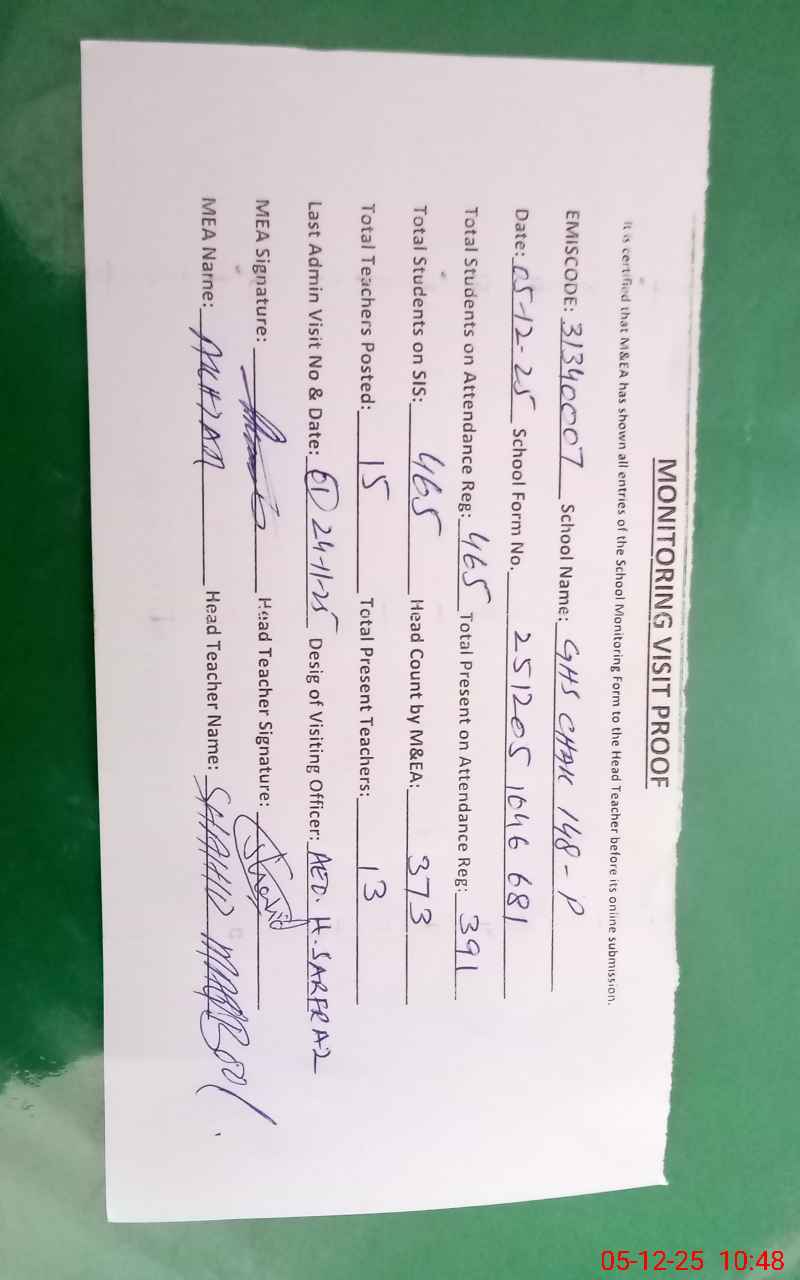 MONITORING VISIT PROOF
It is certified that M&EA has shown all entries of the School Monitoring Form to the Head Teacher before its online submission.
EMISCODE: 31340007 School Name: GHS CHAK 148-P
Date: 05-12-25 School Form No. 251205 1046 681
Total Students on Attendance Reg: 465 Total Present on Attendance Reg: 391
Total Students on SIS: 465 Head Count by M&EA: 373
Total Teachers Posted: 15 Total Present Teachers: 13
Last Admin Visit No & Date: 01 24-11-25 Desig of Visiting Officer: AEO. H. SARFRAZ
MEA Signature: Head Teacher Signature: Shahid
MEA Name: Head Teacher Name: SHAHID MAQBOOL
05-12-25 10:48